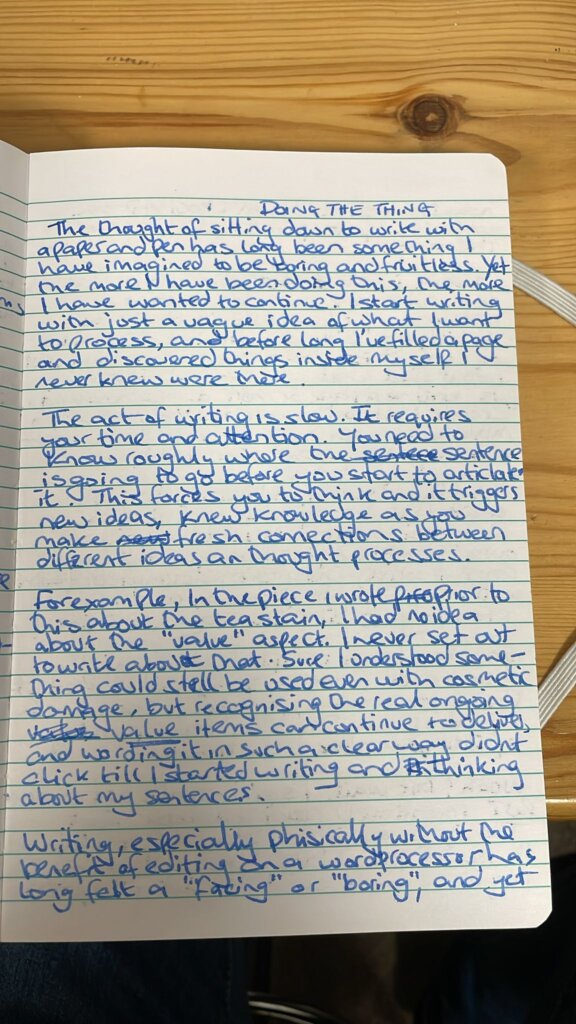 DOING THE THING
The thought of sitting down to write with
a paper and pen has long been something I
have imagined to be boring and fruitless. Yet
the more I have been doing this, the more
I have wanted to continue. I start writing
with just a vague idea of what I want
to process, and before long I've filled a page
and discovered things inside myself I
never knew were there.
The act of writing is slow. It requires
your time and attention. You need to
know roughly where the sentece sentence
is going to go before you start to articlate
it. This forces you to think and it triggers
new ideas, knew knowledge as you
make new fresh connections between
different ideas an thought processes.
For example, In the piece I wrote prior to
this about the tea stain, I had no idea
about the "value" aspect. I never set out
to write about that. Sure I understood some-
thing could still be used even with cosmetic
damage, but recognising the real ongoing
value value items can continue to deliver,
and wording it in such a clear way didnt
click till I started writing and thinking
about my sentences.
Writing, especially phisically without the
benefit of editing on a wordprocessor has
long felt a "facing" or "boring", and yet